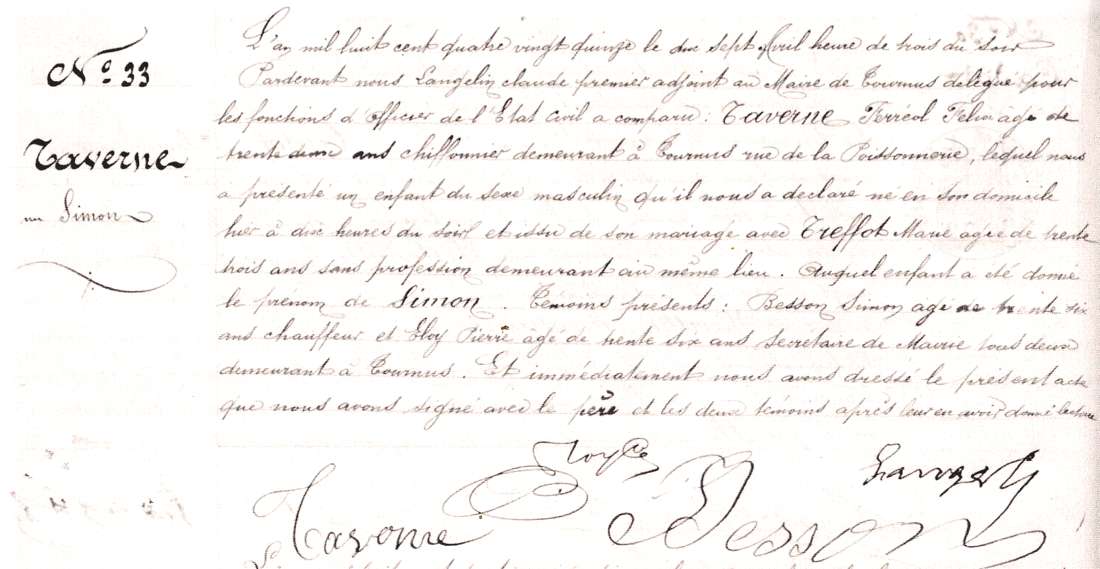 N° 33
Taverne
Simon
L'an mil huit cent quatre vingt quinze le dix sept Avril heure de trois du soir
Pardevant nous Langelin claude premier adjoint au Maire de Tournus délégué pour
les fonctions d'Officier de l'Etat civil a comparu : Taverne Ferréol Felix âgé de
trente deux ans chiffonnier demeurant à Tournus rue de la Poissonnerie, lequel nous
a présenté un enfant du sexe masculin qu'il nous a déclaré né en son domicile
hier à dix heures du soir et issu de son mariage avec Treffot Marie âgée de trente
trois ans sans profession demeurant au même lieu. Auquel enfant a été donné
le prénom de Simon. Témoins présents : Besson Simon agé de trente six
ans chauffeur et Eloy Pierre âgé de trente six ans secrétaire de Mairie tous deux
demeurant à Tournus. Et immédiatement nous avons dressé le présent acte
que nous avons signé avec le père et les deux témoins après leur en avoir donné lecture
Taverne Besson